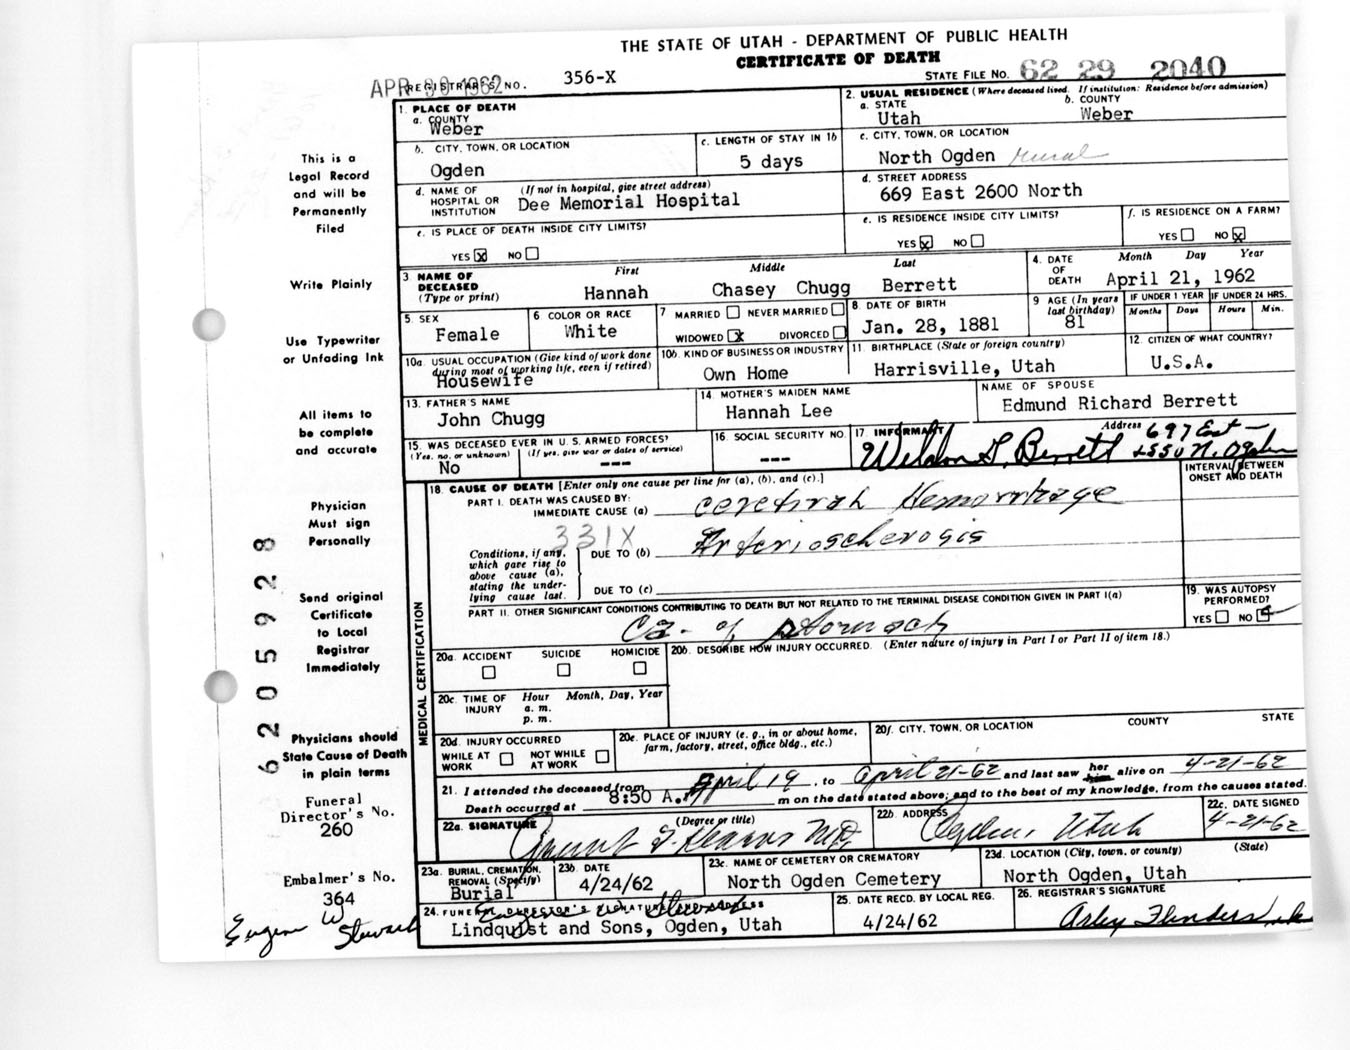 THE STATE OF UTAH - DEPARTMENT OF PUBLIC HEALTH
CERTIFICATE OF DEATH
APR 30 1962
REGISTRAR'S NO. 356-X
STATE FILE NO. 62 29 2040
1. PLACE OF DEATH
a. COUNTY
Weber
2. USUAL RESIDENCE (Where deceased lived. If institution: Residence before admission)
a. STATE
Utah
b. COUNTY
Weber
b. CITY, TOWN, OR LOCATION
Ogden
c. LENGTH OF STAY IN 1b
5 days
c. CITY, TOWN, OR LOCATION
North Ogden rural
d. NAME OF HOSPITAL OR INSTITUTION
(If not in hospital, give street address)
Dee Memorial Hospital
d. STREET ADDRESS
669 East 2600 North
e. IS PLACE OF DEATH INSIDE CITY LIMITS?
YES x NO
e. IS RESIDENCE INSIDE CITY LIMITS?
YES x NO
f. IS RESIDENCE ON A FARM?
YES NO x
3. NAME OF DECEASED
(Type or print)
First Middle Last
Hannah Chasey Chugg Berrett
4. DATE OF DEATH
Month Day Year
April 21, 1962
5. SEX
Female
6. COLOR OR RACE
White
7 MARRIED NEVER MARRIED
WIDOWED x DIVORCED
8. DATE OF BIRTH
Jan. 28, 1881
9 AGE (In years last birthday)
81
IF UNDER 1 YEAR
Months Days
IF UNDER 24 HRS.
Hours Min.
10a. USUAL OCCUPATION (Give kind of work done during most of working life, even if retired)
Housewife
10b. KIND OF BUSINESS OR INDUSTRY
Own Home
11. BIRTHPLACE (State or foreign country)
Harrisville, Utah
12. CITIZEN OF WHAT COUNTRY?
U.S.A.
13. FATHER'S NAME
John Chugg
14. MOTHER'S MAIDEN NAME
Hannah Lee
NAME OF SPOUSE
Edmund Richard Berrett
15. WAS DECEASED EVER IN U. S. ARMED FORCES?
(Yes, no, or unknown) (If yes, give war or dates of service)
No ---
16. SOCIAL SECURITY NO.
---
17 INFORMANT Address
Berrett 697 East
N. Ogden
18. CAUSE OF DEATH [Enter only one cause per line for (a), (b), and (c).]
INTERVAL BETWEEN ONSET AND DEATH
PART I. DEATH WAS CAUSED BY:
IMMEDIATE CAUSE (a) Cerebral Hemorrhage
331X
Conditions, if any, which gave rise to above cause (a), stating the underlying cause last.
DUE TO (b) Arteriosclerosis
DUE TO (c)
PART II. OTHER SIGNIFICANT CONDITIONS CONTRIBUTING TO DEATH BUT NOT RELATED TO THE TERMINAL DISEASE CONDITION GIVEN IN PART I(a)
Ca- of Stomach
19. WAS AUTOPSY PERFORMED?
YES NO
MEDICAL CERTIFICATION
20a. ACCIDENT SUICIDE HOMICIDE
20b. DESCRIBE HOW INJURY OCCURRED. (Enter nature of injury in Part I or Part II of item 18.)
20c. TIME OF INJURY
Hour Month, Day, Year
a. m.
p. m.
20d. INJURY OCCURRED
WHILE AT WORK NOT WHILE AT WORK
20e. PLACE OF INJURY (e. g., in or about home, farm, factory, street, office bldg., etc.)
20f. CITY, TOWN, OR LOCATION COUNTY STATE
21. I attended the deceased from April 19, to April 21-62 and last saw her him alive on 4-21-62
Death occurred at 8:50 A. m on the date stated above; and to the best of my knowledge, from the causes stated.
22a. SIGNATURE (Degree or title)
MD
22b. ADDRESS
Ogden, Utah
22c. DATE SIGNED
4-21-62
23a. BURIAL, CREMATION, REMOVAL (Specify)
Burial
23b. DATE
4/24/62
23c. NAME OF CEMETERY OR CREMATORY
North Ogden Cemetery
23d. LOCATION (City, town, or county) (State)
North Ogden, Utah
24. FUNERAL DIRECTOR'S SIGNATURE AND ADDRESS
Lindquist and Sons, Ogden, Utah
25. DATE RECD. BY LOCAL REG.
4/24/62
26. REGISTRAR'S SIGNATURE
This is a
Legal Record
and will be
Permanently
Filed
Write Plainly
Use Typewriter
or Unfading Ink
All items to
be complete
and accurate
Physician
Must sign
Personally
Send original
Certificate
to Local
Registrar
Immediately
Physicians should
State Cause of Death
in plain terms
Funeral
Director's No.
260
Embalmer's No.
364
Eugene W
Stewart
6205928